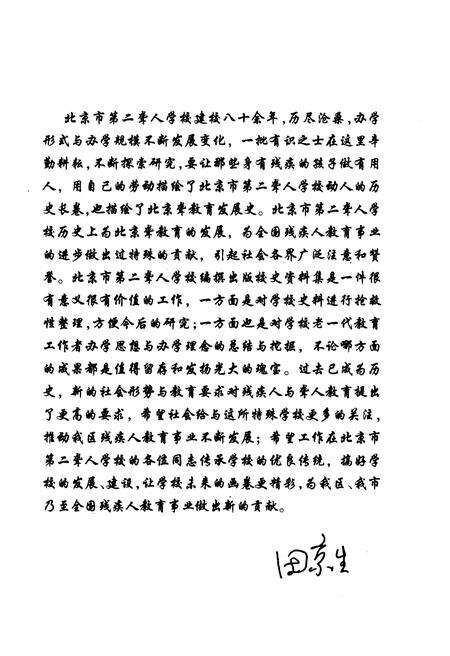 北京市第二聋人学校建校八十余年，历尽沧桑，办学
形式与办学规模不断发展变化，一批有识之士在这里辛
勤耕耘，不断探索研究，要让那些身有残疾的孩子做有用
人，用自己的劳动描绘了北京市第二聋人学校动人的历
史长卷，也描绘了北京聋教育发展史。北京市第二聋人学
校历史上为北京聋教育的发展，为全国残疾人教育事业
的进步做出过特殊的贡献，引起社会各界广泛注意和赞
誉。北京市第二聋人学校编撰出版校史资料集是一件很
有意义很有价值的工作，一方面是对学校史料进行抢救
性整理，方便今后的研究；一方面也是对学校老一代教育
工作者办学思想与办学理念的总结与挖掘，不论哪方面
的成果都是值得留存和发扬光大的瑰宝。过去已成为历
史，新的社会形势与教育要求对残疾人与聋人教育提出
了更高的要求，希望社会给与这所特殊学校更多的关注，
推动我区残疾人教育事业不断发展；希望工作在北京市
第二聋人学校的各位同志传承学校的优良传统，搞好学
校的发展、建设，让学校未来的画卷更精彩，为我区、我市
乃至全国残疾人教育事业做出新的贡献。
田京生